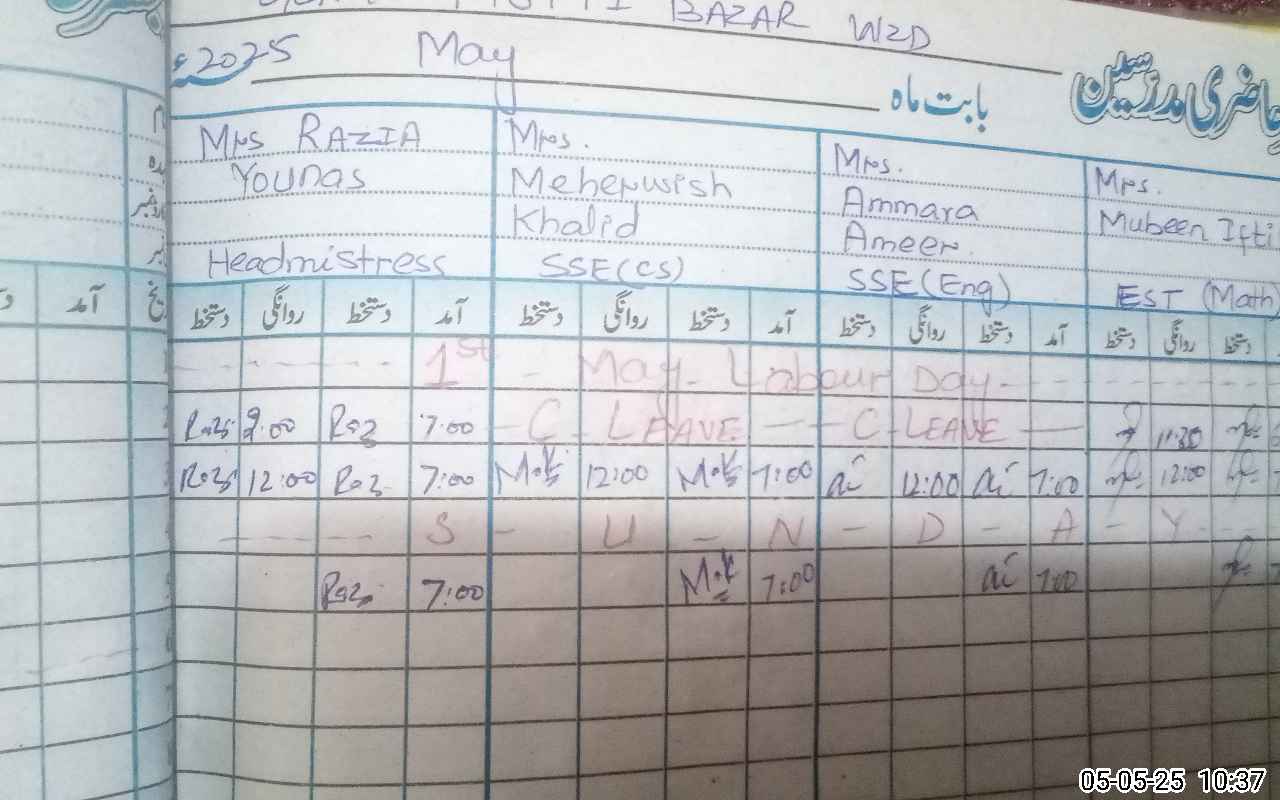 BAZAR WZD
حاضری مدرسین بابت ماہ May 2025ء
Mrs RAZIA Younas Headmistress
Mrs. Meherwish Khalid SSE(CS)
Mrs. Ammara Ameer. SSE(Eng)
Mrs. Mubeen EST (Math)
آمد دستخط روانگی دستخط آمد دستخط روانگی دستخط آمد دستخط روانگی دستخط دستخط روانگی دستخط
آمد
1st - May - Labour Day
Raz 9:00 Raz 7:00 C LEAVE C LEAVE 11:30
Raz 12:00 Raz 7:00 M.K 12:00 M.K 7:00 ai 12:00 ai 7:00 12:00
S - U - N - D - A - Y
Raz 7:00 M.K 7:00 ai 7:00
05-05-25 10:37